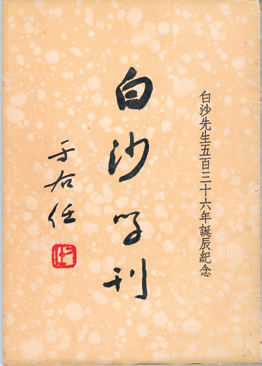 白沙先生五百三十六年誕辰紀念
白沙学刊
于右任